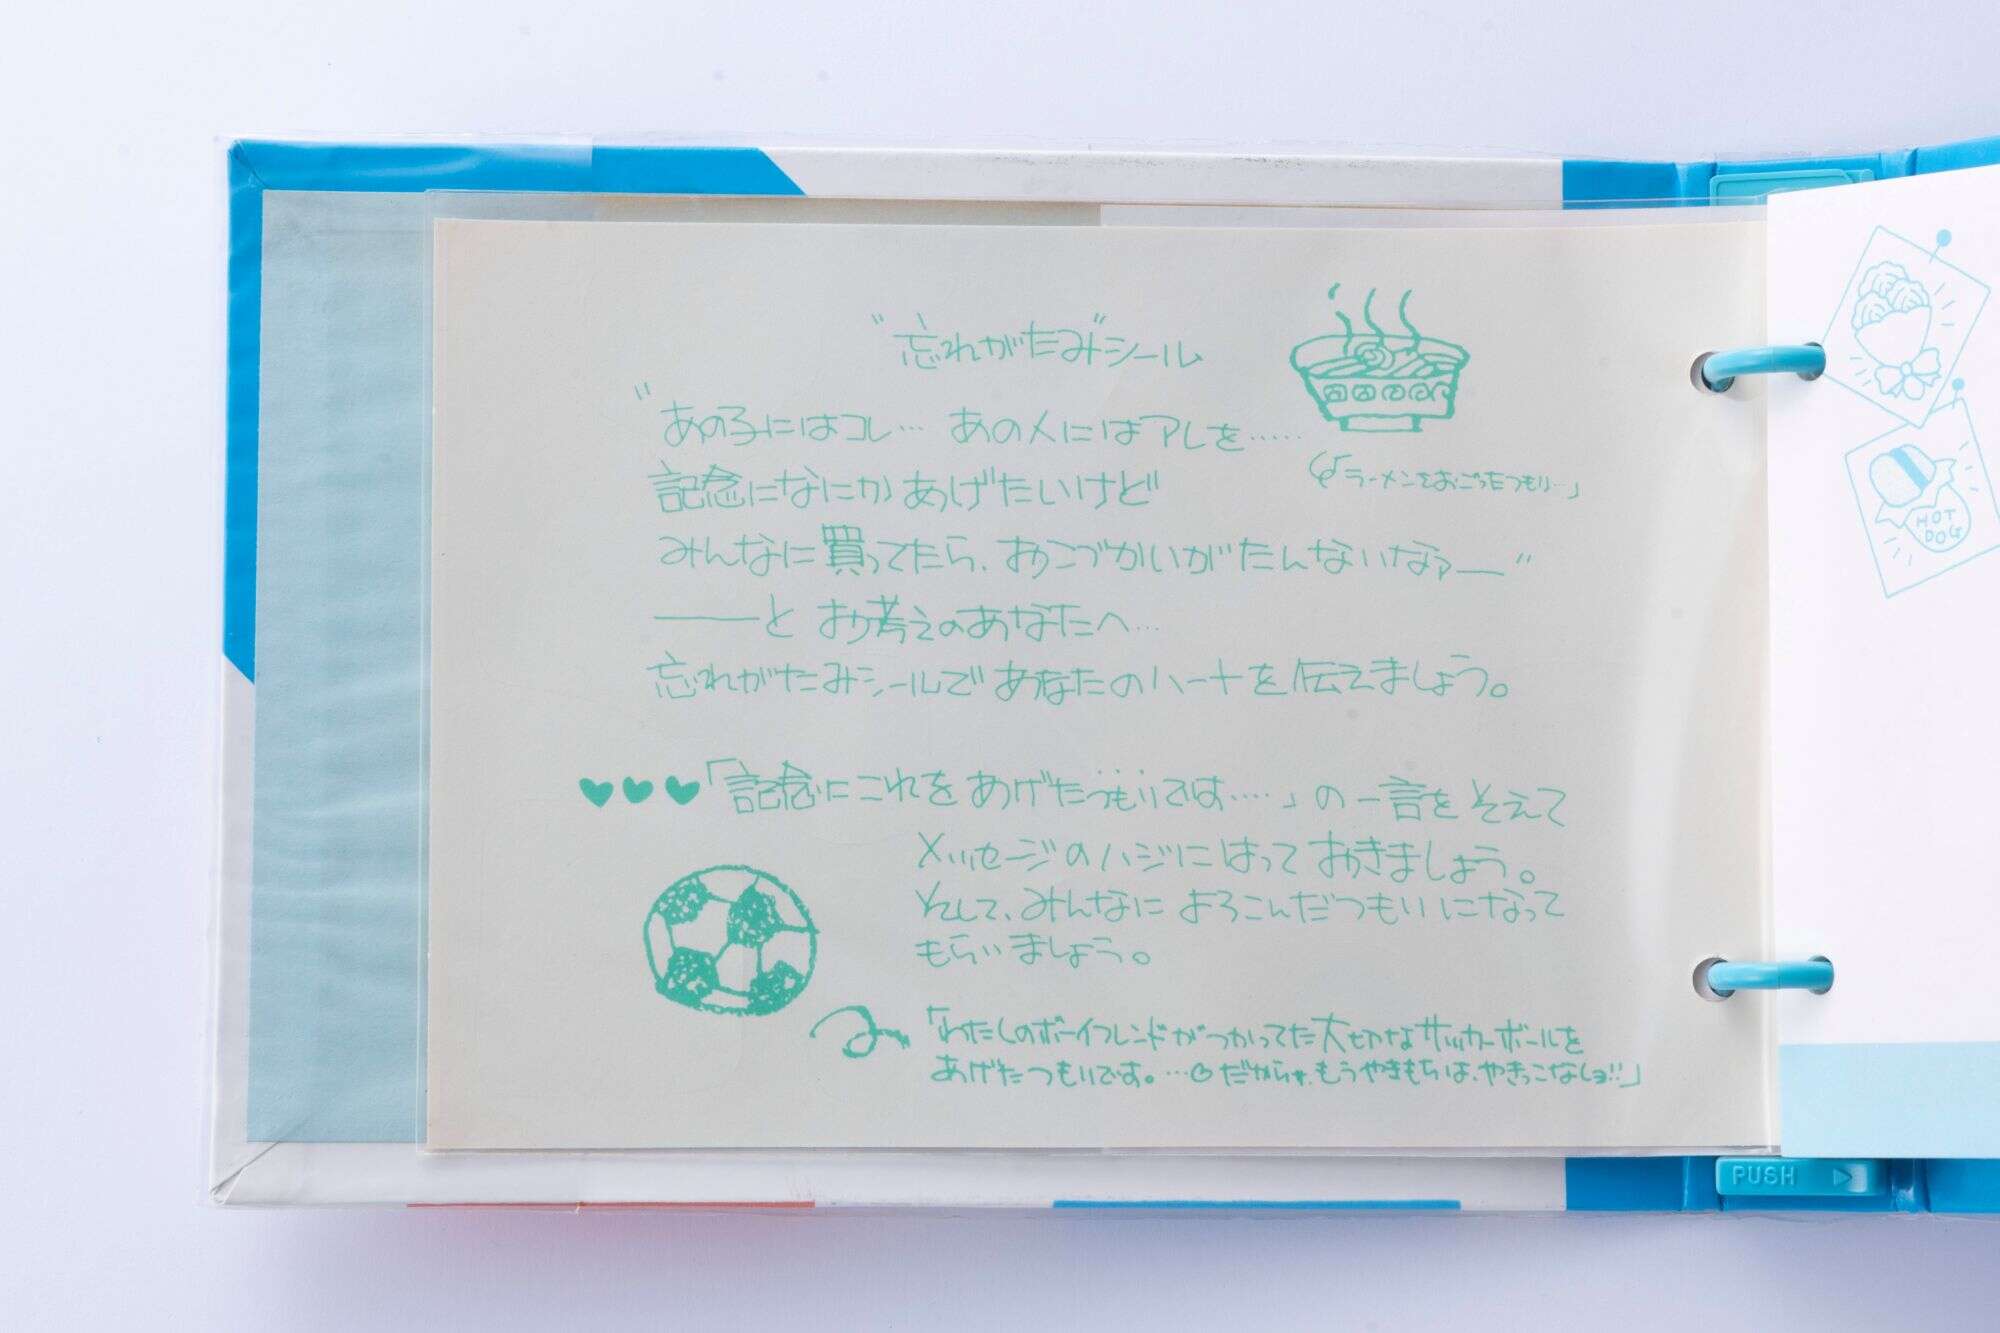 "忘れがたみ"シール
"あの子にはコレ… あの人にはアレを……
「ラーメンをおごったつもり…」
記念になにかあげたいけど
みんなに買ってたら、おこづかいがたんないなァー"
――と お考えのあなたへ…
忘れがたみシールであなたのハートを伝えましょう。
♥♥♥「記念にこれをあげたつもりでは……」の一言をそえて
メッセージのハジにはっておきましょう。
そして、みんなによろこんだつもりになって
もらいましょう。
「わたしのボーイフレンドがつかってた大切なサッカーボールを
あげたつもりです。…♡だからサ、もうやきもちは、やきっこなしヨ!!」
HOT
DOG
PUSH